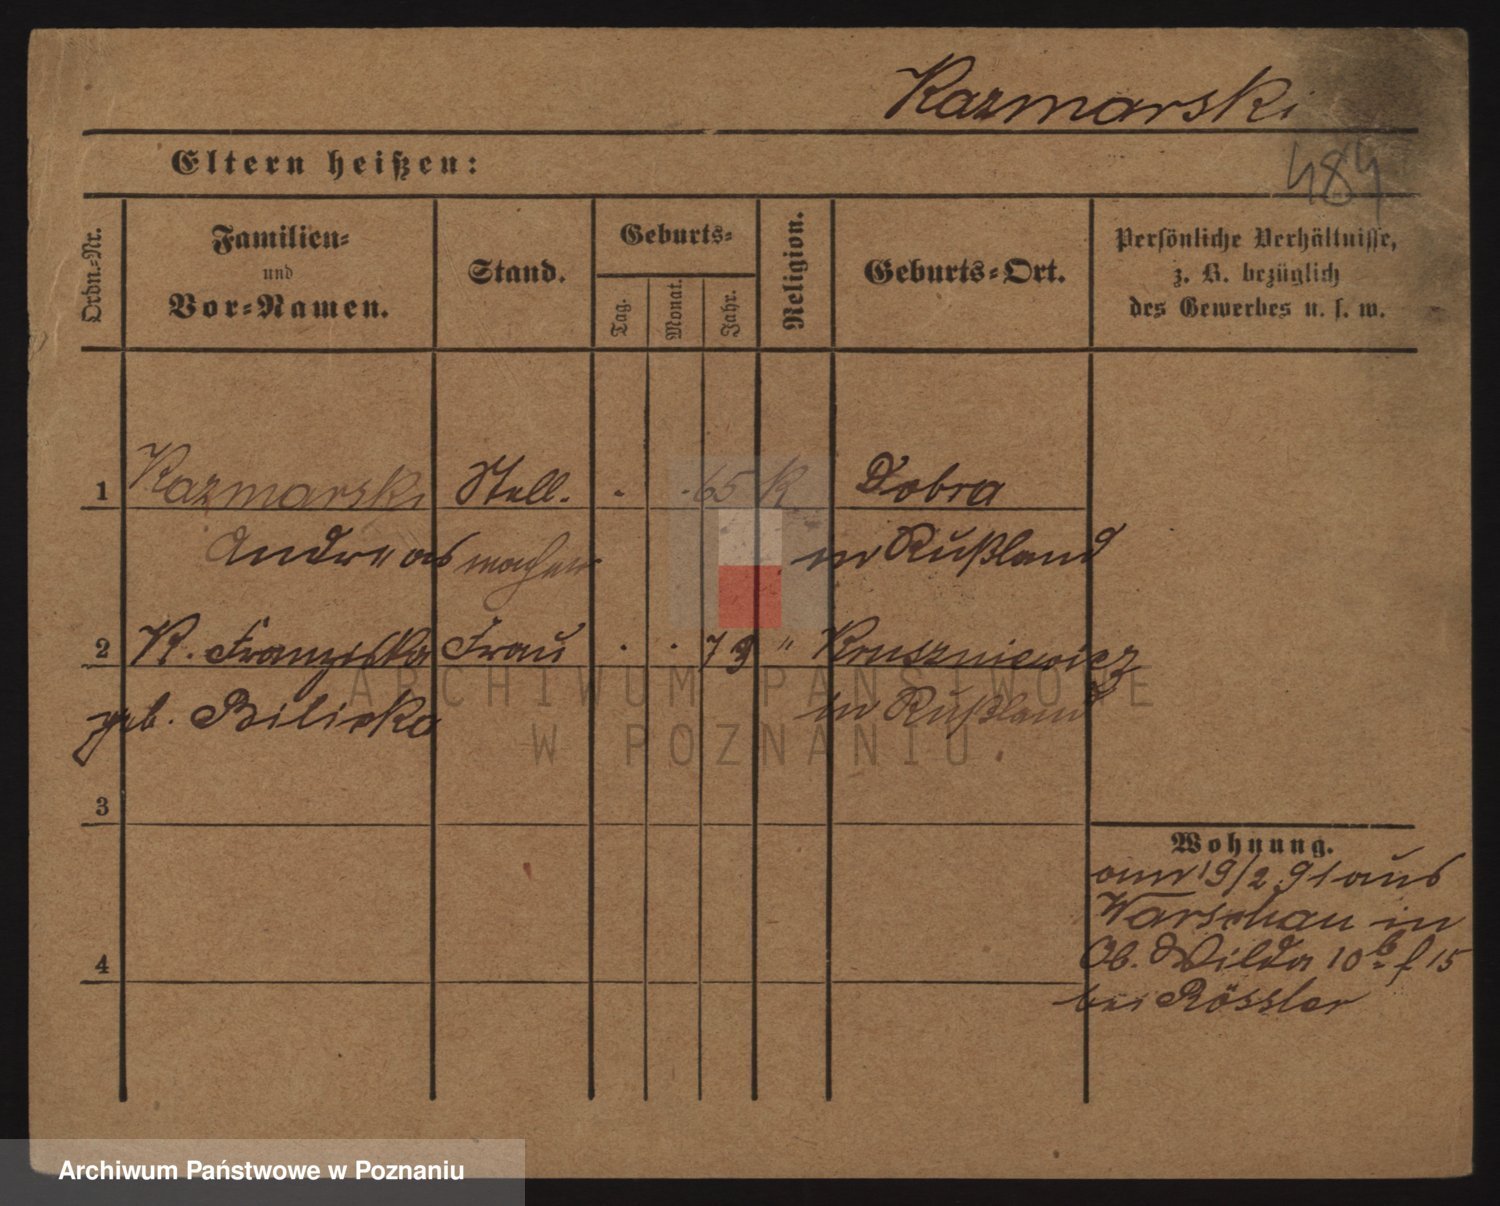 Kazmarski
Eltern heißen:
484
Ordn.-Nr.
Familien-
und
Vor-Namen.
Stand.
Geburts-
Tag.
Monat.
Jahr.
Religion.
Geburts-Ort.
Persönliche Verhältnisse,
z. B. bezüglich
des Gewerbes u. s. w.
1 Kazmarski Stell. . . 65 K. Dobra
Andreas macher in Rußland
2 K. Franziska Frau . . 73 " Kruszniewicz
geb. Bilicka in Rußland
3
4
Wohnung.
am 19/2 91 aus
Warschau in
Ob. Wilda 10b f 15
bei Rössler
ARCHIWUM PAŃSTWOWE
W POZNANIU.
Archiwum Państwowe w Poznaniu